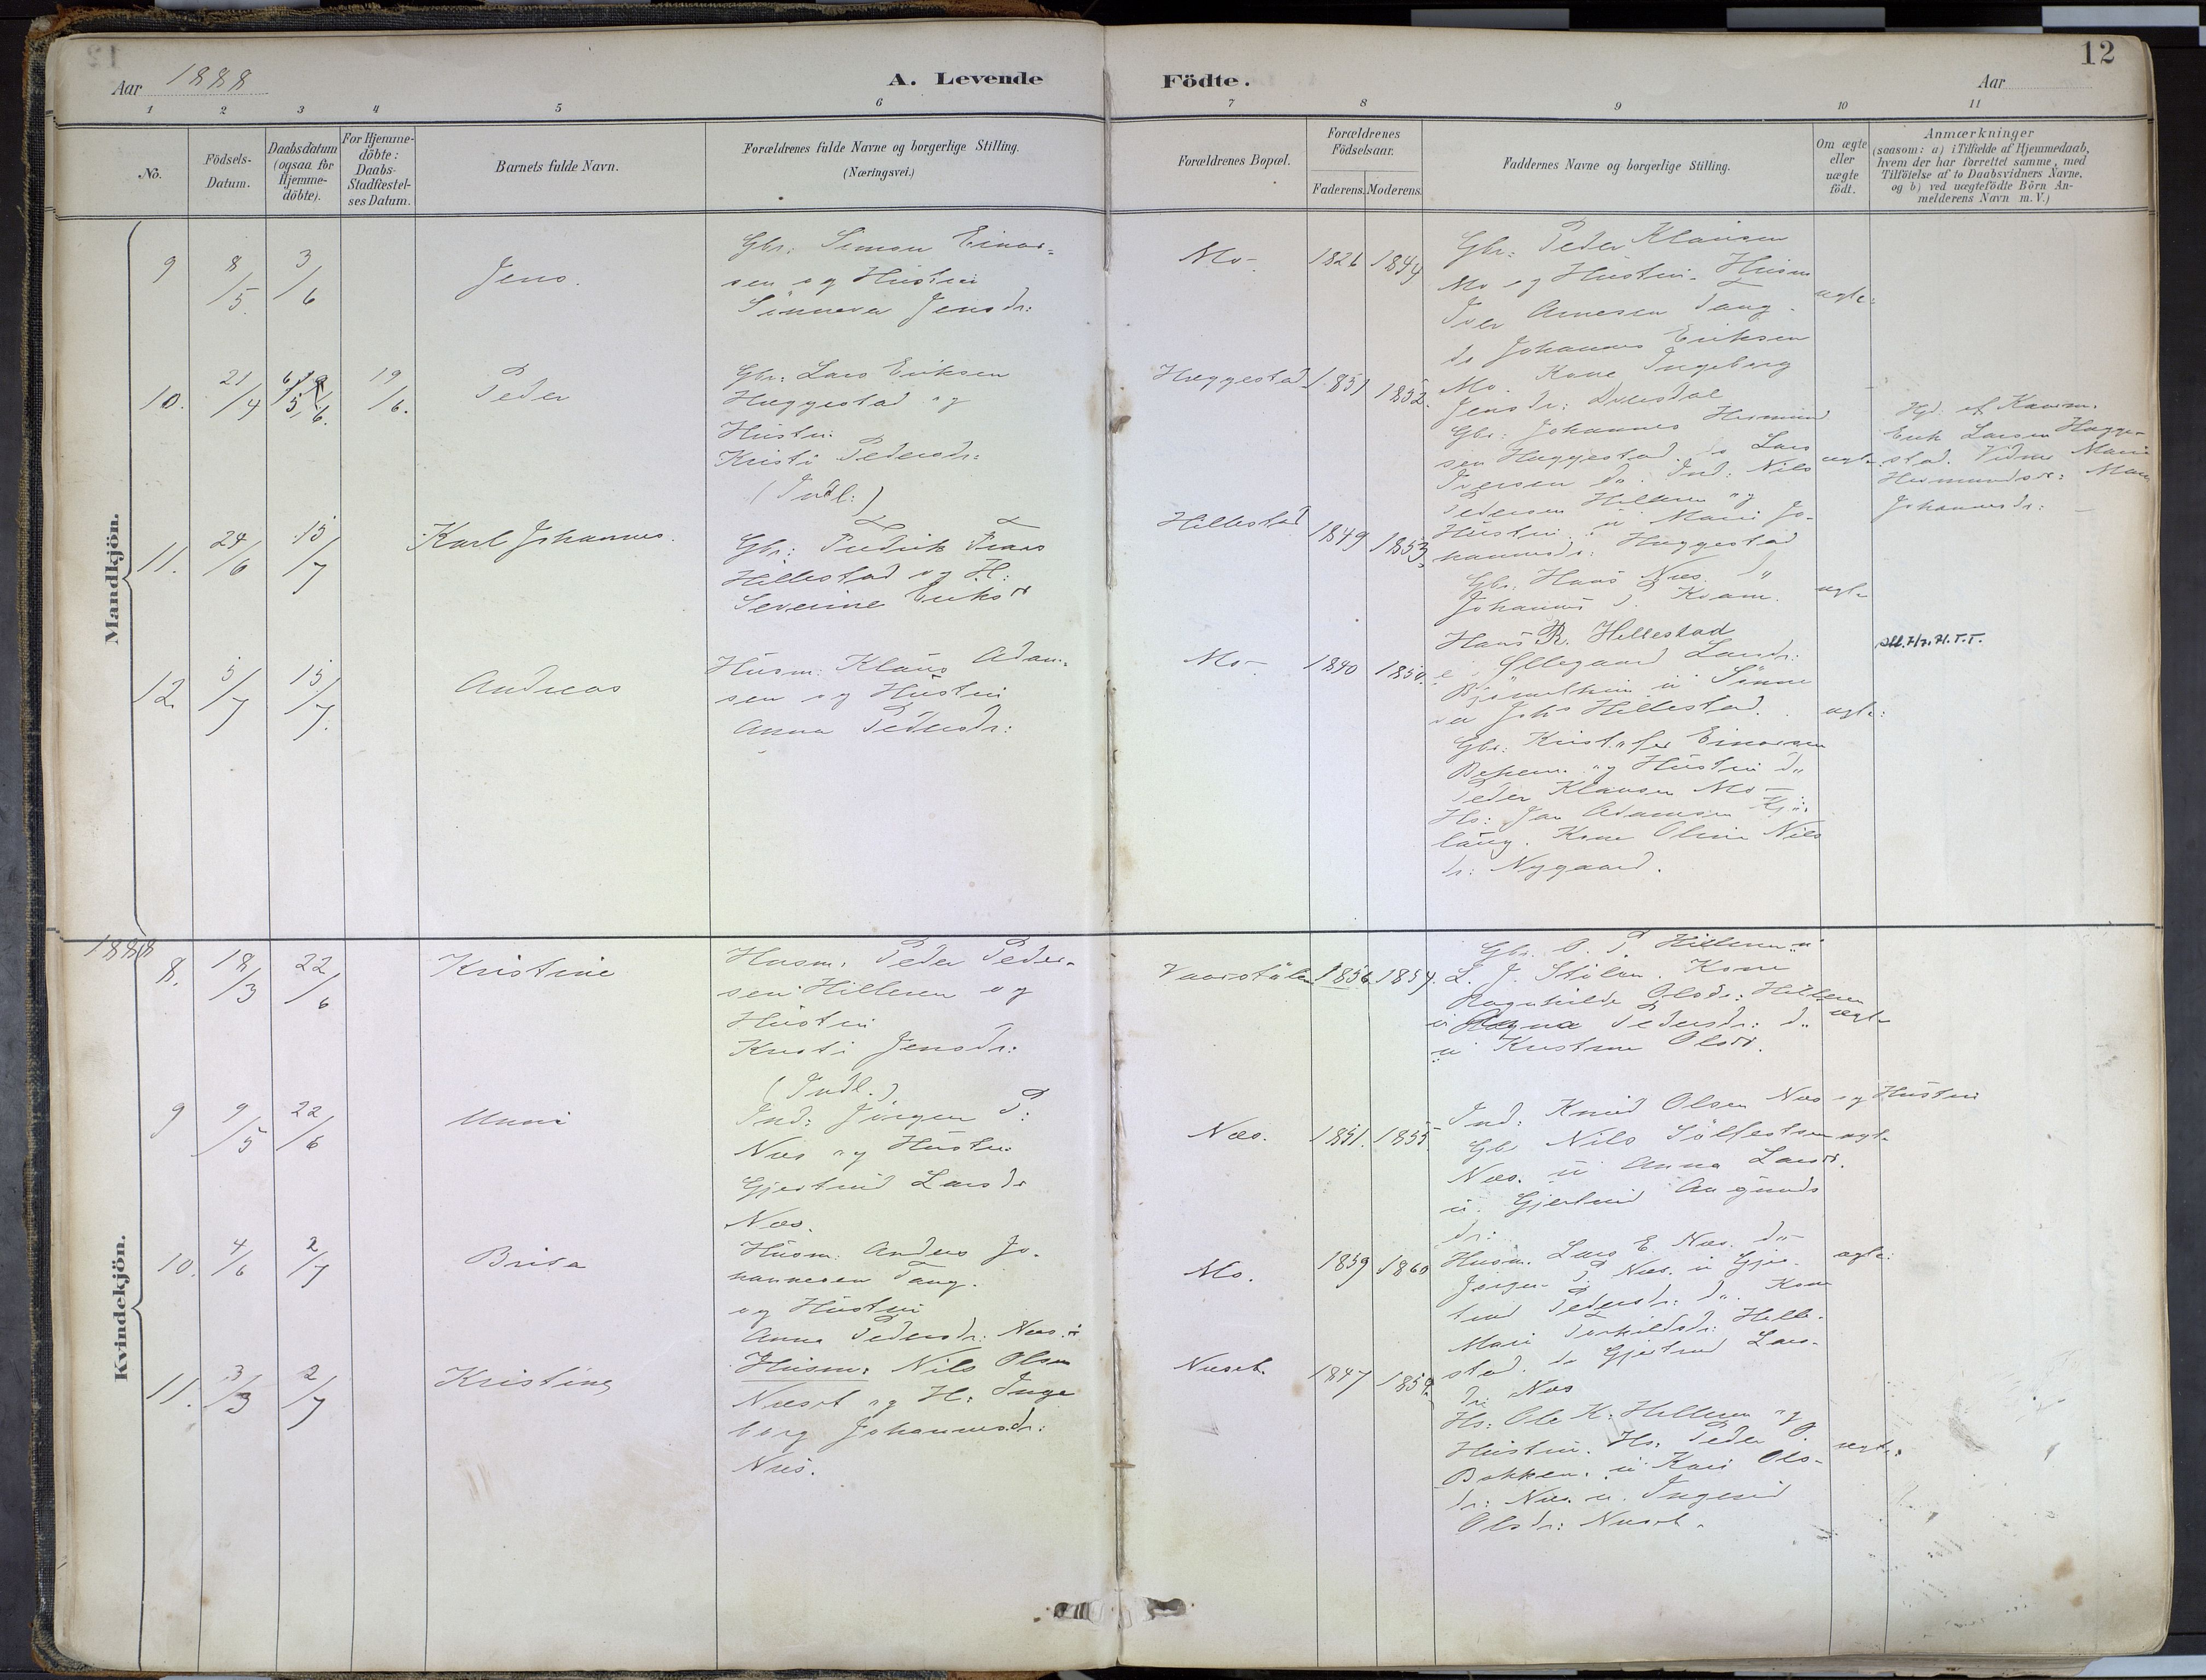 12
Aar 1888
A. Levende Födte.
Aar
1 2 3 4 5 6 7 8 9 10 11
No.
Födsels-Datum.
Daabsdatum (ogsaa for Hjemme-döbte).
For Hjemme-döbte: Daabs-Stadfæstel-ses Datum.
Barnets fulde Navn.
Forældrenes fulde Navne og borgerlige Stilling.
(Næringsvei.)
Forældrenes Bopæl.
Forældrenes Födselsaar.
Faderens. Moderens.
Faddernes Navne og borgerlige Stilling.
Om ægte eller uægte födt.
Anmærkninger
(saasom: a) i Tilfælde af Hjemmedaab,
hvem der har forrettet samme, med
Tilföielse af to Daabsvidners Navne.
og b) ved uægtefödte Börn An-
melderens Navn m. V.)
Mandkjön.
9
8/5
3/6
Jens.
Gbr: Simon Einar-
sen og Hustru
Sünneva Jensdr:
Mo
1826 1844
Gbr: Peder Klausen
Mo og Hustru. Husm
Iver Arnesen Tang.
do Johannes Eriksen
Mo. Kone Ingeborg
Jensdr:
ægte:
10.
21/4
6/5
19/6.
Peder
Gbr: Lars Eriksen
Hæggestad og
Hustru
Kristi Pedersdr:
(Indl:)
Hæggestad
1851 1852.
Gbr: Johannes Hermund
sen Hæggestad. do Lars
Iversen do. Ind: Nils
Pedersen Hilleren og
Hustru. u Mari Jo-
hannesdr: Hæggestad
ægte
Hjd. af Kaarm.
Erik Larsen Hægge-
stad. Vidne Mari
Hermundsdr: Mari
Johannesdr:
11.
24/6
15/7
Karl Johannes.
Gbr: Fredrik Frans
Hillestad og H:
Severine Eriksdr
Hillestad
1849 1853.
Gbr: Hans Næs. do
Johannes J. Kvam.
Hans R. Hillestad
Ellegaard Larsdr:
u Sünne
va Johs Hillestad.
ægte
12.
5/7
15/7.
Andreas
Husm: Klaus Adam-
sen og Hustru
Anna Pedersdr:
Mo
1840 1850.
Gbr: Kristofer Einarsen
og Hustru do
Peder Klausen Mo
Hs: Jan Adamsen Kjö-
laug. Kone Oline Nils
dr: Nygaard.
ægte:
Kvindekjön.
1888
8.
18/3
22/6
Kristine
Husm. Peder Peder-
sen Hilleren og
Hustru
Kristi Jensdr:
(Indl.)
Vaarstölen
1856 1854.
Gbr. O. P. Hilleren u
L. J. Stölen. Kone
Ragnhilde Olsdr: Hilleren
u Ragna Pedersdr: do
u Kristine Olsdr.
ægte
9
9/5
22/6
Unni
Ind: Jörgen P:
Næs og Hustru
Gjertrud Larsdr
Næs.
Næs.
1851. 1855
Ind: Knud Olsen Næs og Hustru
Gb Nils Sölfestsen
Næs. u Anna Larsdr.
u. Gjertrud Angunds
dr:
ægte
10.
4/6
2/7
Brita
Husm. Anders Jo-
hannesen Tang.
og Hustru
Anna Pedersdr: Næs.
Mo.
1859 1860
Husm. Lars E. Næs. do
Jörgen P. Næs. u Gjer-
trud Pedersdr: do. Kone
Mari Torkildsdr: Hille-
stad. do Gjertrud Lars-
dr: Næs
ægte:
11.
3/3
2/7
Kristine
Husm: Nils Olsen
Næset og H: Inge
borg Johannesdr:
Næs.
Næset.
1847
Hs: Ole K: Hilleren og
Hustru. Hs. Peder O.
Bakken. u Kari Ols-
dr: Næs u. Ingerid
Olsdr: Næset.
ægte: